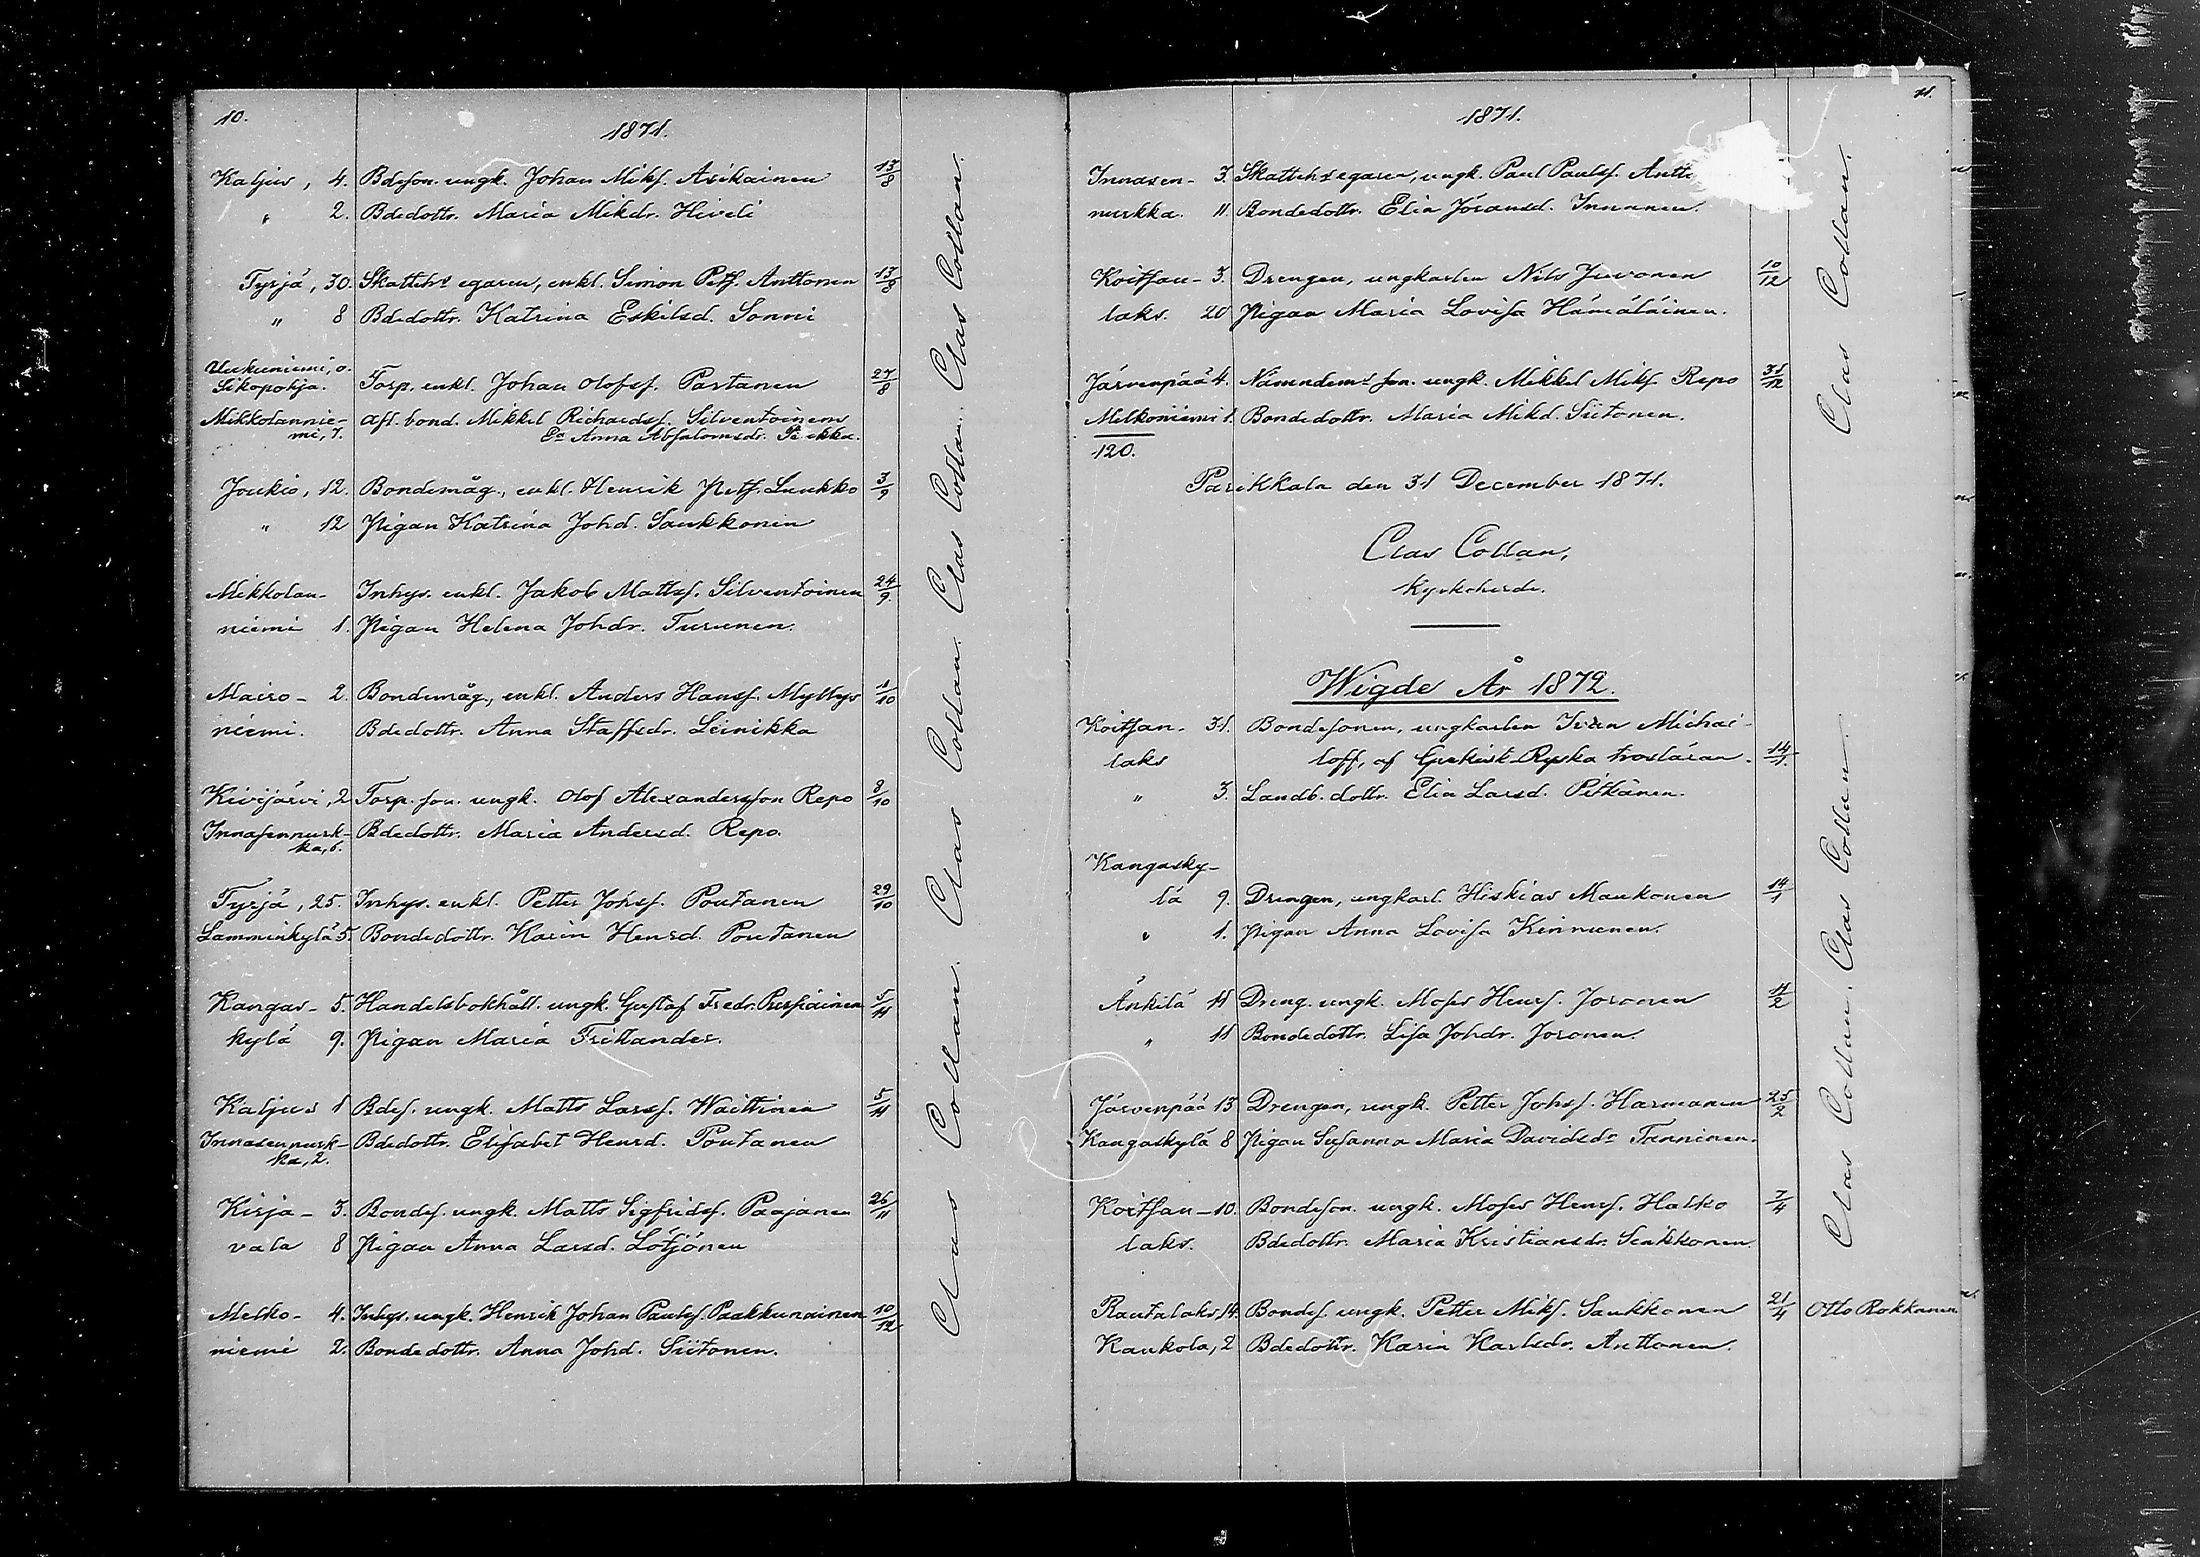 10.
1871.
Kaljus, 4. Bdeson. ungk. Johan Miksf. Asikainen 13/8
" 2. Bdedottr. Maria Mikdr. Hiveli
Tyrjä, 30. Skattehs egaren, enkl. Simon Petf. Anttonen 13/8
" 8 Bdedottr. Katrina Eskilsd. Sonni
Uukuniemi, o.
Sikopohja. Torp. enkl. Johan Olofsf. Partanen 27/8
Mikkolannie- Afl. bond. Mikkel Richardsf. Silventoinens
mi, 7. Ea Anna Absalomsdr.
Joukio, 12. Bondemåg., enkl. Henrik Petf. Luukko 3/9
" 12 Pigan Katrina Johd. Saukkonen
Mikkolan- Inhys. enkl. Jakob Mattsf. Silventoinen 24/9.
niemi 1. Pigan Helena Johdr. Turunen.
Mairo- 2. Bondemåg., enkl. Anders Hansf. Myllys 1/10
niemi. Bdedottr. Anna Staffsdr. Leinikka
Kivijärvi, 2 Torp. son. ungk. Olof Alexandersson Repo 8/10
Innasennurk- Bdedottr. Maria Andersd. Repo.
ka, 6.
Tyrjä, 25. Inhys. enkl. Petter Johsf. Poutanen 29/10
Lamminkylä 5. Bondedottr. Karin Hensd. Poutanen
Kangas- 5. Handelsbokhåll. ungk. Gustaf Fredr. Pursiainen 5/11
kylä 9. Pigan Maria Frilander.
Kaljus 1 Bdes. ungk. Matts Larsf. Waittinen 5/11
Innasennurk- Bdedottr. Elisabet Hensd. Poutanen
ka, 2.
Kirja- 3. Bondes. ungk. Matts Sigfridsf. Paajanen 26/11
vala 8 Pigan Anna Larsd. Lötjönen
Melko- 4. Inhys. ungk. Henrik Johan Paulsf. Paakkunainen 10/12
niemi 2. Bondedottr. Anna Johd. Siitonen.
Clas Collan. Clas Collan. Clas Collan. Clas Collan. Clas Collan.
11.
1871.
Innasen- 3. Skattehs egaren, ungk. Paul Paulsf.
nurkka. 11. Bondedottr. Elia Jöransd. Innanen.
Koitsan- 3. Drengen, ungkarlen Nils Juvonen 10/12
laks. 20 Pigan Maria Lovisa Hämäläinen.
Järvenpää 4. Nämndems son. ungk. Mikkel Miksf. Repo 31/12
Melkoniemi 1. Bondedottr. Maria Mikd. Siitonen.
120.
Clas Collan.
Parikkala den 31 December 1871.
Clas Collan,
Kyrkoherde.
Wigde År 1872.
Koitsan- 31. Bondesonen, ungkarlen Ivan Michai-
laks loff, af Grekisk-Ryska trosläran. 14/1.
" 3. Landb. dottr. Elia Larsd. Pitkänen.
Kangasky-
lä 9. Drengen, ungkarl. Hiskias Maukonen 14/1
" 1. Pigan Anna Lovisa Kinnunen.
Änkilä 11 Dreng. ungk. Moses Hensf. Joronen 11/2
" 11 Bondedottr. Lisa Johdr. Joronen.
Järvenpää 13 Drengen, ungk. Petter Johsf. Harmanen 25/2
Kangaskylä 8 Pigan Susanna Maria Davidsdr Tanninen.
Koitsan- 10. Bondeson. ungk. Moses Hensf. Halko 7/4
laks. Bdedottr. Maria Kristiansdr. Siukkonen.
Rautalaks, 14. Bondes. ungk. Petter Miksf. Saukkonen 21/4 Otto Rokkanen.
Kaukola, 2 Bdedottr. Karin Karlsdr. Anttonen.
Clas Collan. Clas Collan.